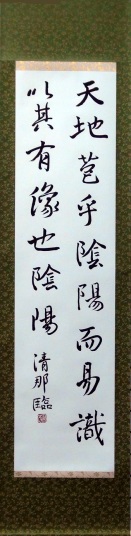 天地苞乎陰陽而易識
以其有像也陰陽
清那臨